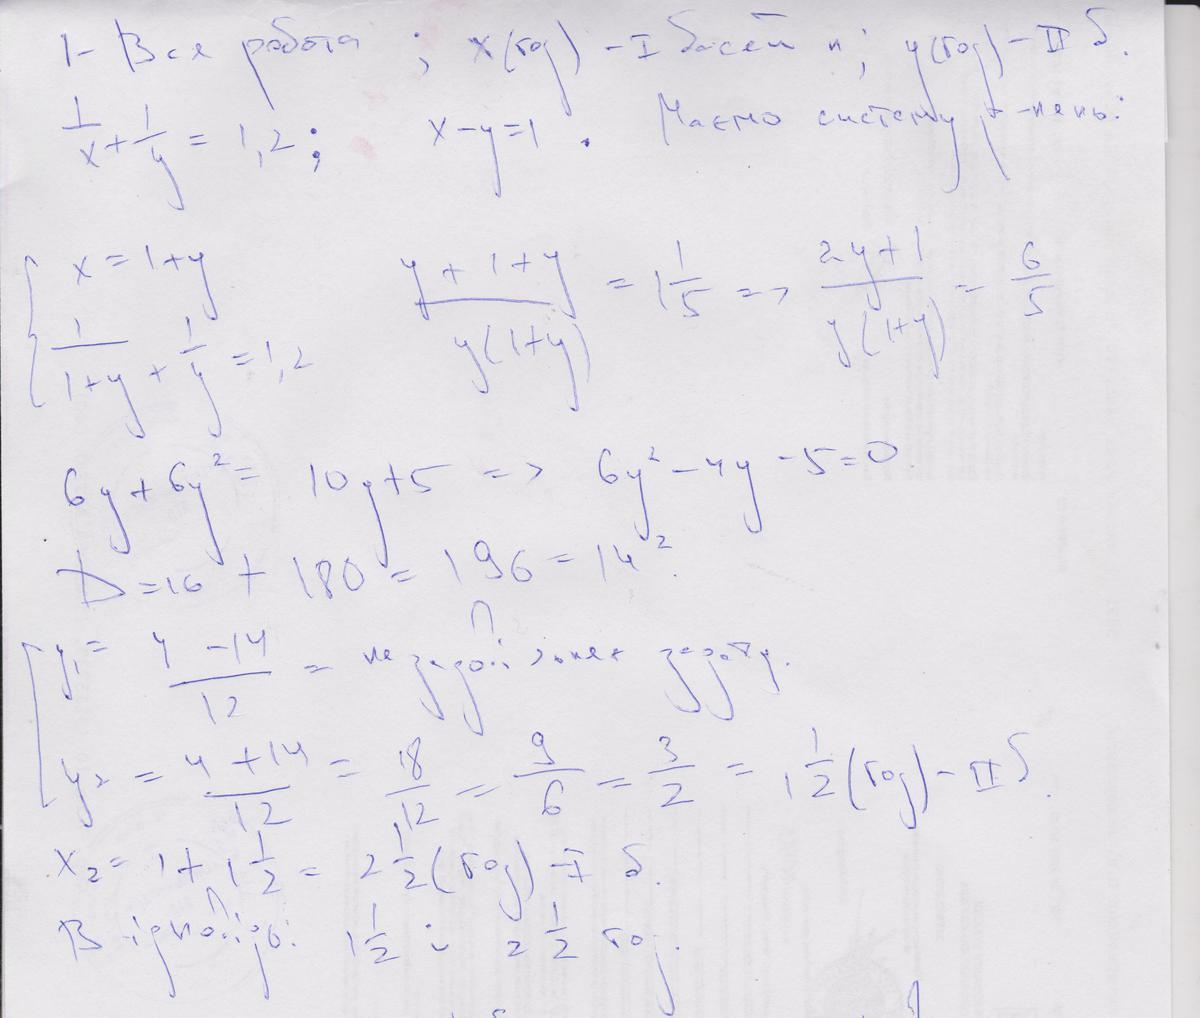 1 - Вся робота ; x(год) - I басейн; y(год) - II б.
1/x + 1/y = 1,2; x - y = 1. Маємо систему р-нянь:
{ x = 1+y
1/(1+y) + 1/y = 1,2 (y+1+y)/(y(1+y)) = 1 1/5 => (2y+1)/(y(1+y)) = 6/5
6y + 6y² = 10y + 5 => 6y² - 4y - 5 = 0.
D = 16 + 180 = 196 = 14².
[ y₁ = (4 - 14)/12 = не задовільняє задачу.
y₂ = (4 + 14)/12 = 18/12 = 9/6 = 3/2 = 1 1/2 (год) - II б.
x₂ = 1 + 1 1/2 = 2 1/2 (год) - I б.
Відповідь: 1 1/2 і 2 1/2 год.